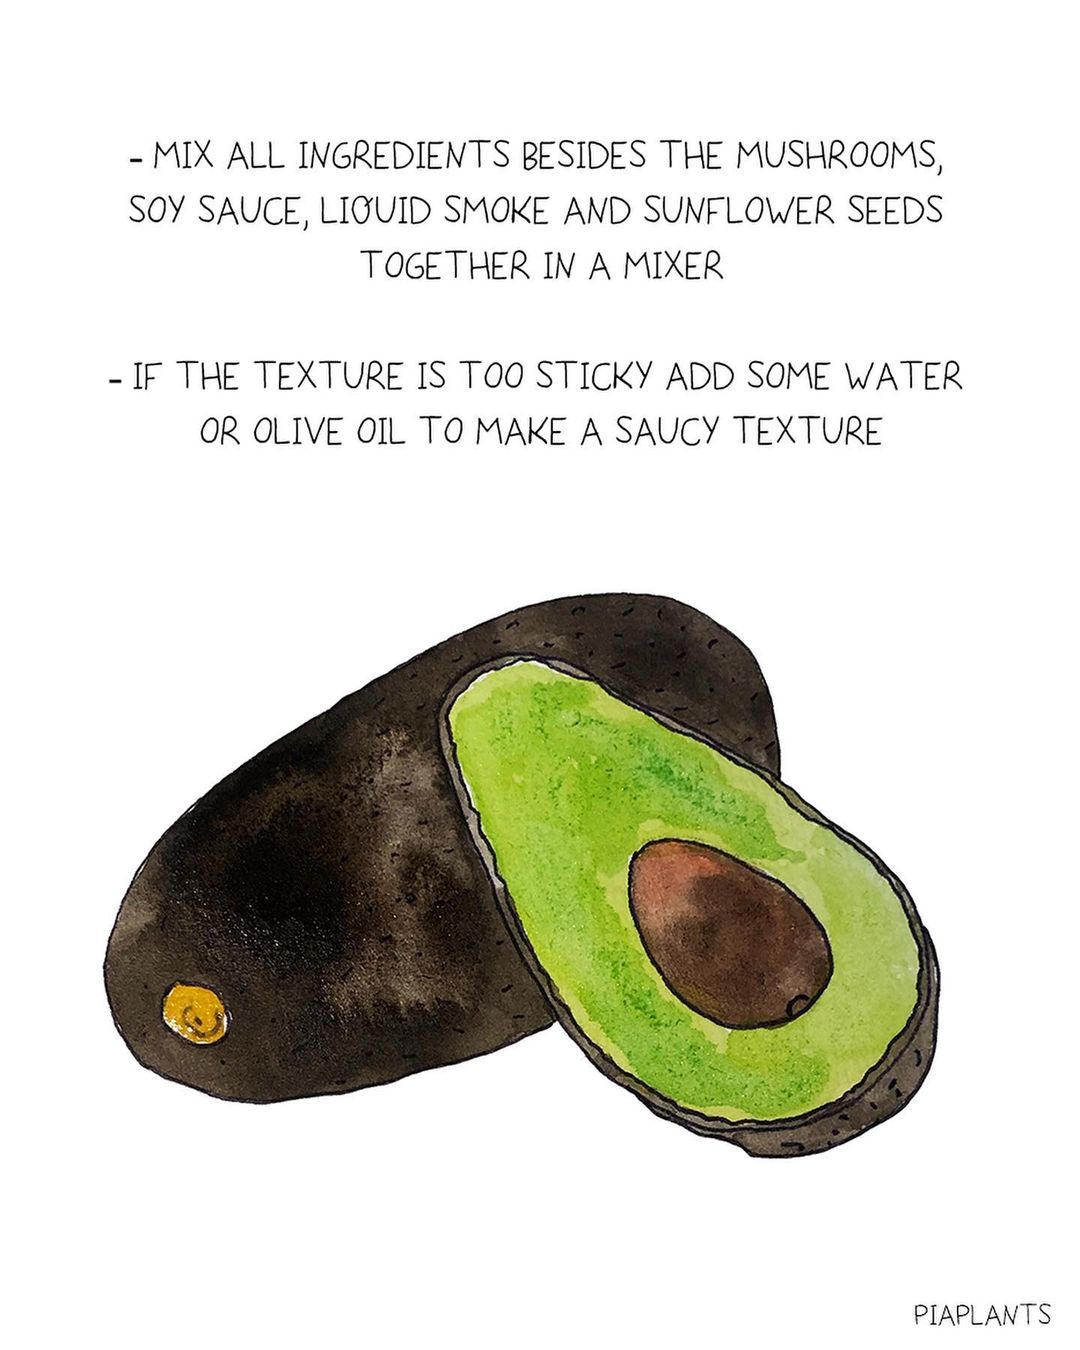 - MIX ALL INGREDIENTS BESIDES THE MUSHROOMS,
SOY SAUCE, LIQUID SMOKE AND SUNFLOWER SEEDS
TOGETHER IN A MIXER
- IF THE TEXTURE IS TOO STICKY ADD SOME WATER
OR OLIVE OIL TO MAKE A SAUCY TEXTURE
PIAPLANTS